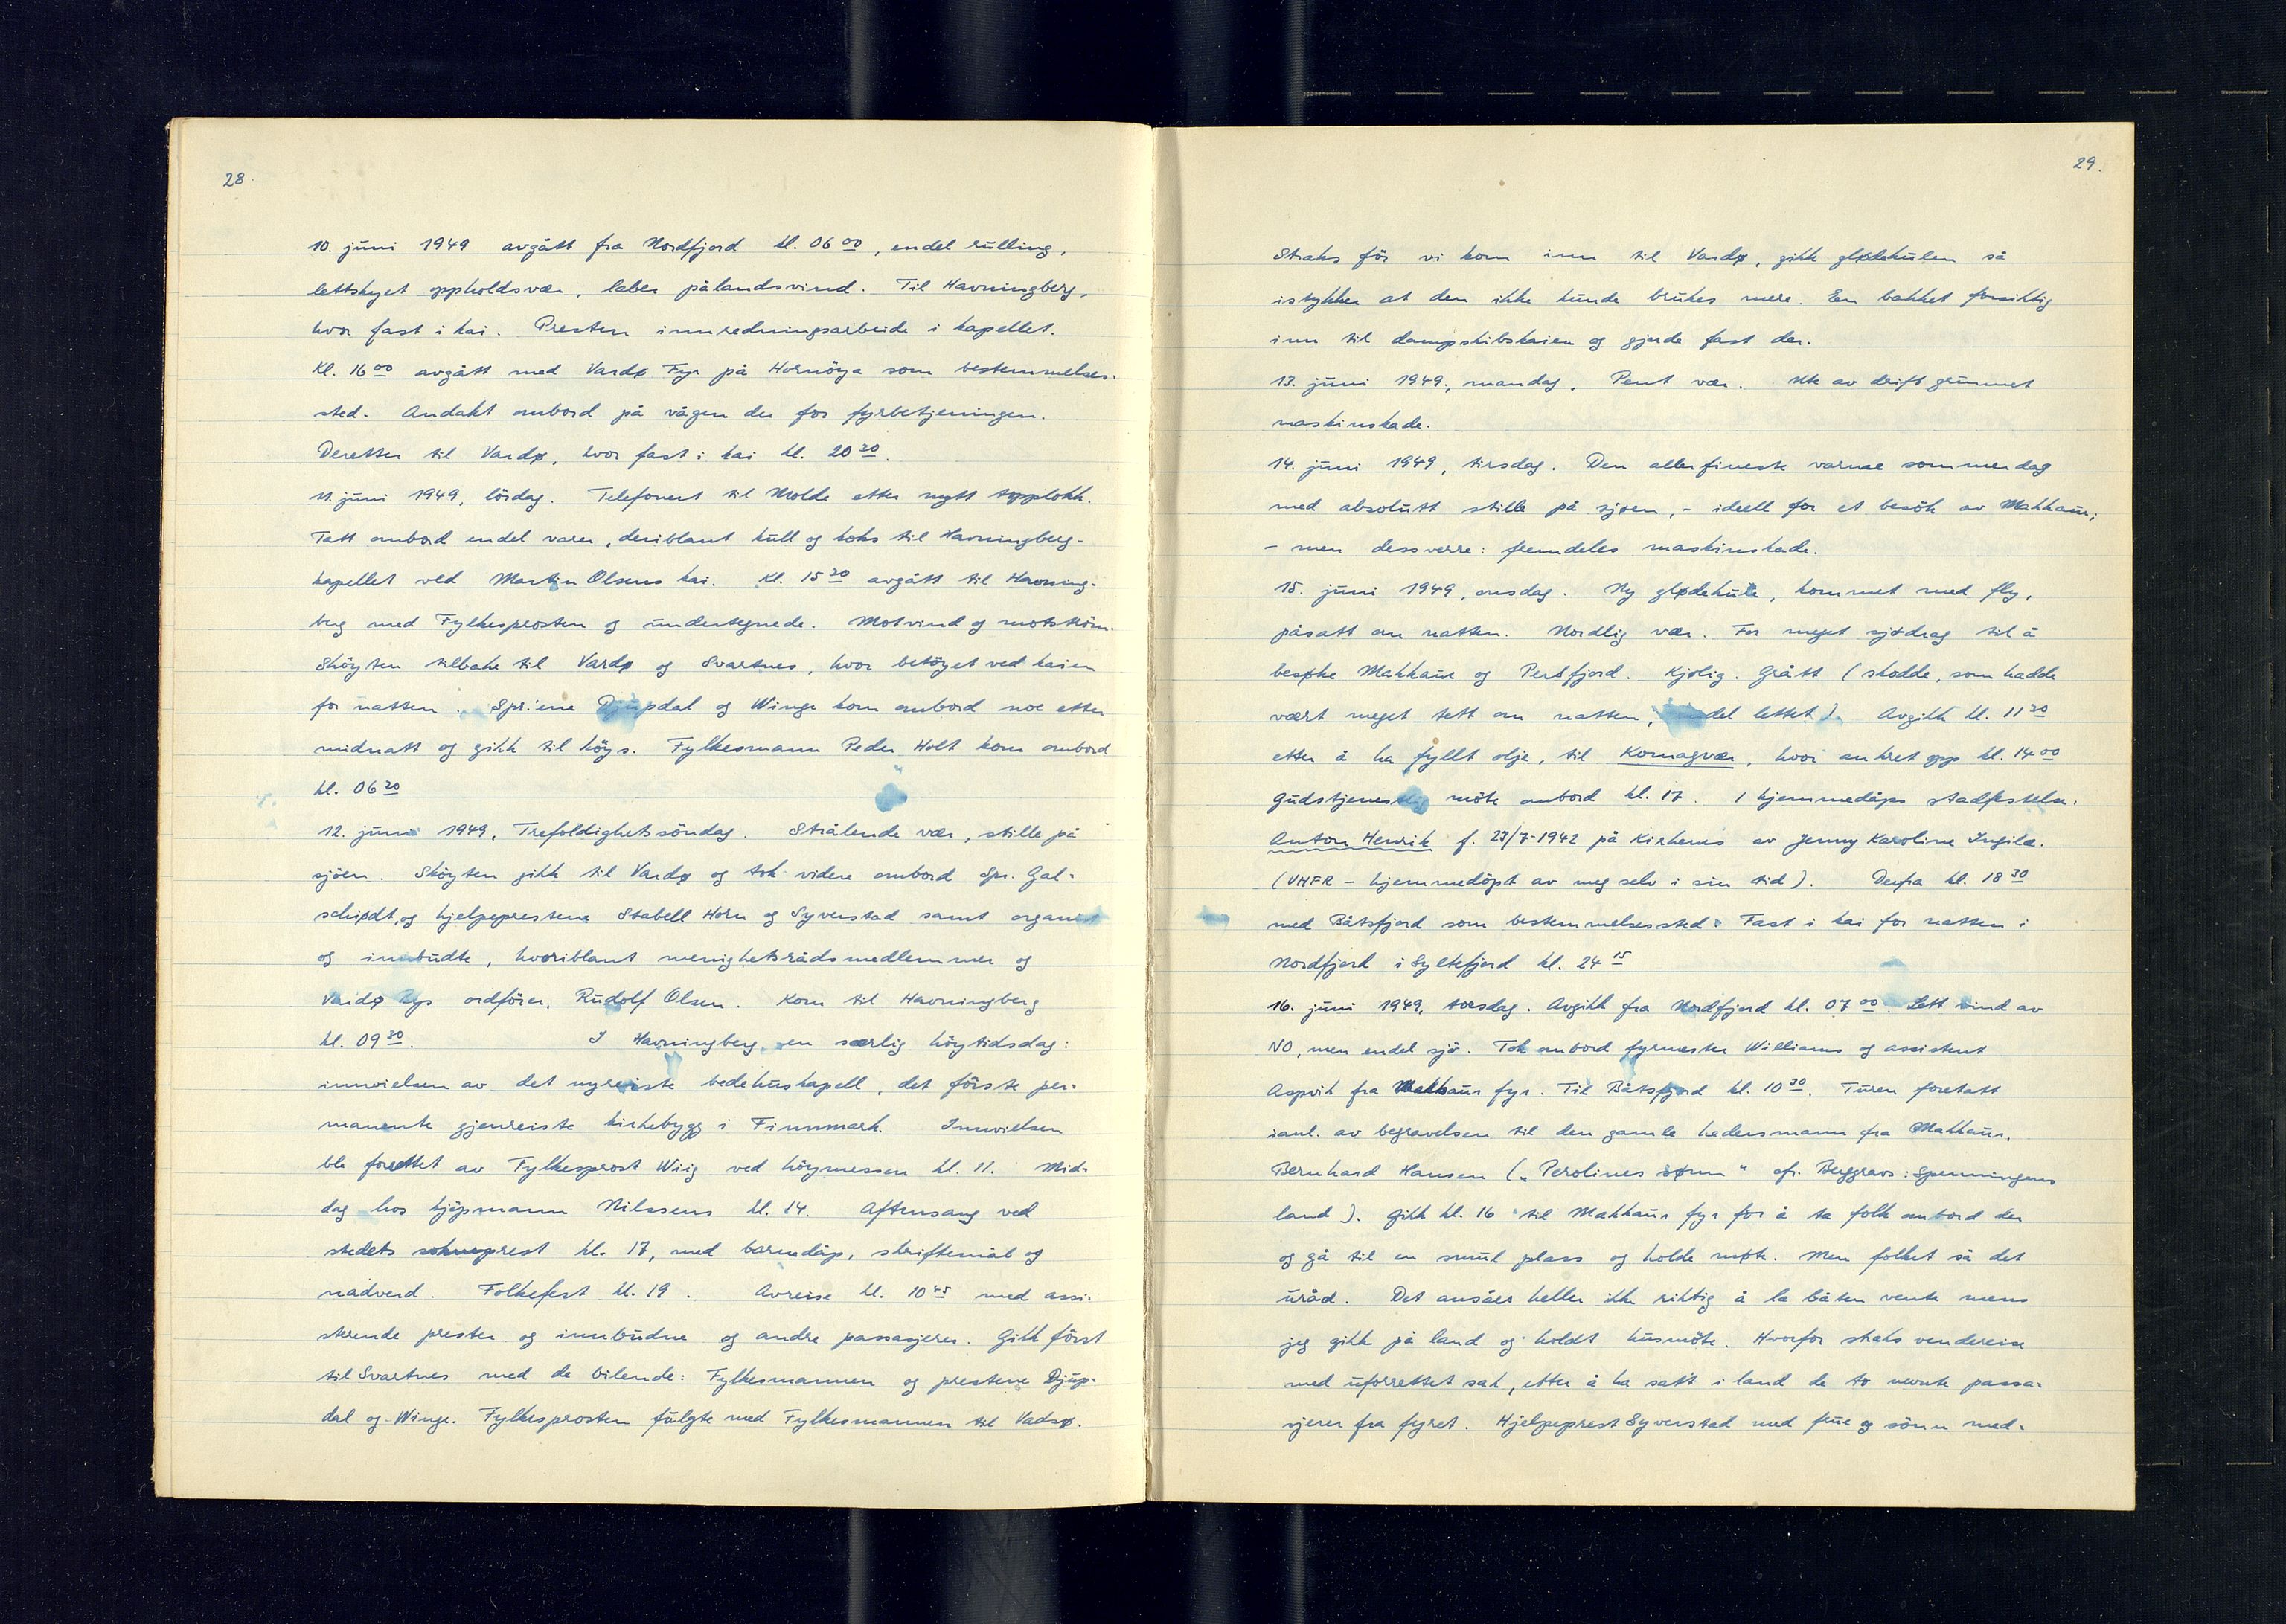 28.
10. juni 1949 avgått fra Nordfjord kl. 06 00, endel rulling,
lettskyet oppholdsvær, laber pålandsvind. Til Havningberg,
hvor fast i kai. Presten innredningsarbeide i kapellet.
Kl. 16 00 avgått med Vardø Fyr på Hornöya som bestemmelses-
sted. Andakt ombord på vågen der for fyrbetjeningen.
Deretter til Vardø, hvor fast i kai kl. 20 30.
11. juni 1949, lördag. Telefonert til Molde etter nytt topplokk.
Tatt ombord endel varer, deriblant kull og koks til Havningberg-
kapellet ved Martin Olsens kai. Kl. 15 30 avgått til Havning-
berg med Fylkesprosten og undertegnede. Motvind og motström.
Sköyten tilbake til Vardø og Svartnes, hvor betöyet ved kaien
for natten. Spr.ene Djupdal og Winge kom ombord noe etter
midnatt og gikk til köys. Fylkesmann Peder Holt kom ombord
kl. 06 30
12. juni 1949, Trefoldighetssöndag. Strålende vær, stille på
sjöen. Sköyten gikk til Vardø og tok videre ombord Spr. Gal-
schiødt, og hjelpeprestene Stabell Horn og Syverstad samt organist
og innbudte, hvoriblant menighetsrådsmedlemmer og
Vardø bys ordförer, Rudolf Olsen. Kom til Havningberg
kl. 09 30. I Havningberg en særlig höytidsdag:
innvielsen av det nyreiste bedehuskapell, det förste per-
manente gjenreiste kirkebygg i Finnmark. Innvielsen
ble forrettet av Fylkesprost Wiig ved höymessen kl. 11. Mid-
dag hos kjöpmann Nilssens kl. 14. Aftensang ved
stedets sokneprest kl. 17, med barnedåp, skriftemål og
nadverd. Folkefest kl. 19. Avreise kl. 10 45 med assi-
sterende prester og innbudne og andre passasjerer. Gikk först
til Svartnes med de bilende: Fylkesmannen og prestene Djup-
dal og Winge. Fylkesprosten fulgte med Fylkesmannen til Vadsø.
29.
Straks för vi kom inn til Vardø, gikk glødekulen så
istykker at den ikke kunde brukes mere. En bakket forsiktig
inn til dampskibskaien og gjorde fast der.
13. juni 1949, mandag. Pent vær. Ute av drift grunnet
maskinskade.
14. juni 1949, tirsdag. Den allerfineste varme sommerdag
med absolutt stille på sjøen, - ideell for et besök av Makkaur;
- men dessverre: fremdeles maskinskade.
15. juni 1949, onsdag. Ny glødekule, kommet med fly,
påsatt om natten. Nordlig vær. For meget sjødrag til å
besøke Makkaur og Persfjord. Kjølig. Grått (skodde, som hadde
vært meget tett om natten, endel lettet). Avgikk kl. 11 30
etter å ha fyllt olje, til Komagvær, hvor ankret opp kl. 14 00
Gudstjenestlig möte ombord kl. 17. 1 hjemmedåps stadfestelse.
Anton Henrik f. 27/7-1942 på Kirkenes av Jenny Karoline Ingilæ.
(VHFR - hjemmedöpt av meg selv i sin tid). Derfra kl. 18 30
med Båtsfjord som bestemmelsessted. Fast i kai for natten i
Nordfjord i Syltefjord kl. 24 15
16. juni 1949, torsdag. Avgikk fra Nordfjord kl. 07 00. Lett vind av
NO, men endel sjö. Tok ombord fyrmester Williams og assistent
Aspvik fra Makkaur fyr. Til Båtsfjord kl. 10 30. Turen foretatt
ianl. av begravelsen til den gamle hedersmann fra Makkaur,
Bernhard Hansen („Perolines sønn" cfr. Berggravs: Spenningens
land). Gikk kl. 16 til Makkaur fyr for å ta folk ombord der
og gå til en smul plass og holde møte. Men folket så det
uråd. Det ansåes heller ikke riktig å la båten vente mens
jeg gikk på land og holdt husmöte. Hvorfor straks vendereise
med uforrettet sak, etter å ha satt i land de to nevnte passa-
sjerer fra fyret. Hjelpeprest Syverstad med frue og sönn med-